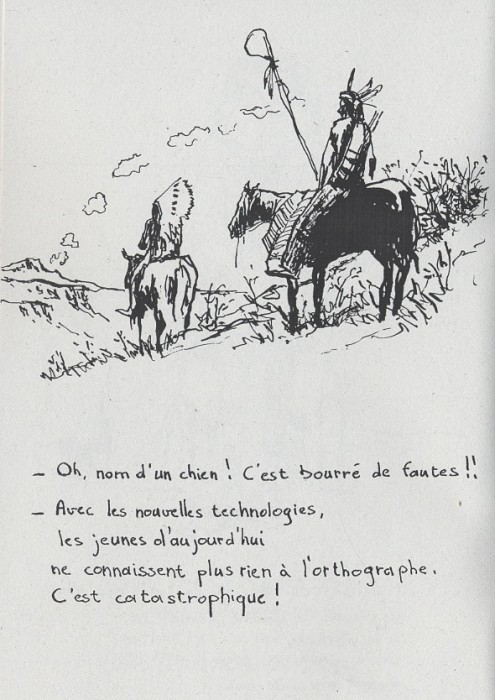 – Oh, nom d'un chien ! C'est bourré de fautes !!
– Avec les nouvelles technologies,
les jeunes d'aujourd'hui
ne connaissent plus rien à l'orthographe.
C'est catastrophique !